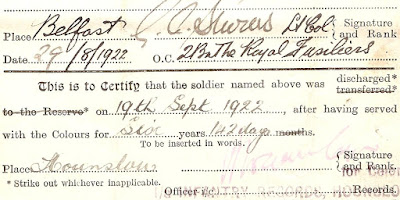 Place Belfast Lt Col. Signature
Date 29/8/1922 O.C. 2/Bn The Royal Fusiliers and Rank
This is to Certify that the soldier named above was discharged*
transferred*
to the Reserve* on 19th Sept 1922, after having served
with the Colours for Six years 142 days months.
To be inserted in words.
Place Hounslow Signature
and Rank
* Strike out whichever inapplicable. Officer i/c Records.
RECORDS, HOUNSLOW